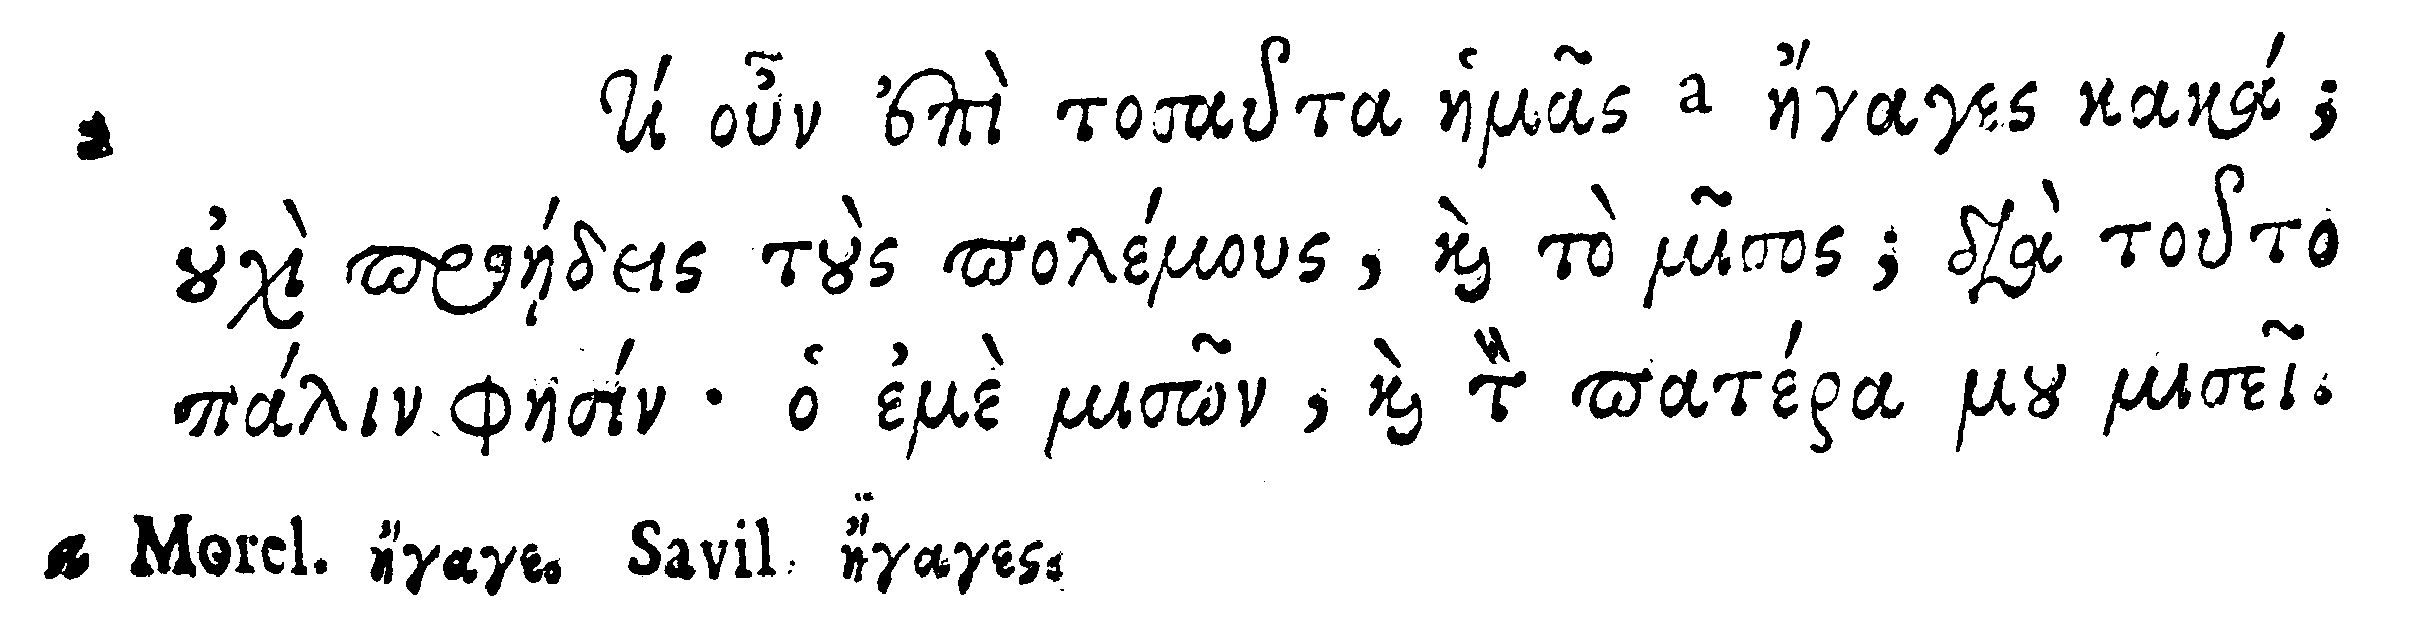 Τί οὖν ἐπὶ τοσαῦτα ἡμᾶς a ἤγαγες κακά;
οὐχὶ προῄδεις τοὺς πολέμους, καὶ τὸ μῖσος; διὰ τοῦτο
πάλιν φησίν· ὁ ἐμὲ μισῶν, καὶ τὸν πατέρα μου μισεῖ.
a Morel. ἤγαγε. Savil. ἤγαγες.